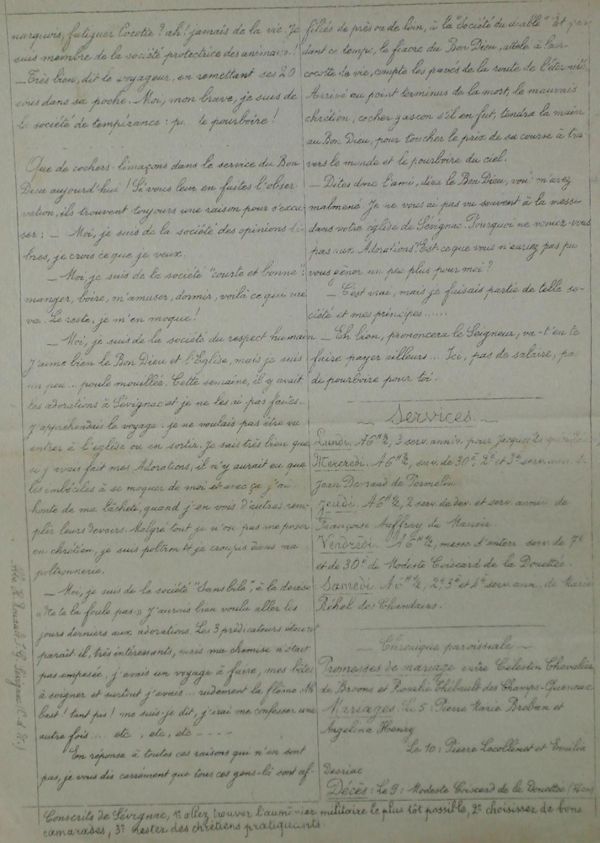 narquois, fatiguer Cocotte ? ah ! jamais de la vie. Je
suis membre de la société protectrice des animaux !
— Très bien, dit le voyageur, en remettant ses 20
sous dans sa poche. Moi, mon brave, je suis de
la société de tempérance : pas de pourboire !
Que de cochers-limaçons dans le service du Bon
Dieu aujourd'hui ! Si vous leur en faites l'obser-
vation, ils trouvent toujours une raison pour s'excu-
ser : — Moi, je suis de la société des opinions li-
bres, je crois ce que je veux.
— Moi, je suis de la société "courte et bonne" :
manger, boire, m'amuser, dormir, voilà ce qui me
va. Le reste, je m'en moque !
— Moi, je suis de la société du respect humain
J'aime bien le Bon Dieu et l'Eglise, mais je suis
un peu... poule mouillée. Cette semaine, il y avait
les adorations à Sévignac et je ne les ai pas faites.
J'appréhendais le voyage : je ne voulais pas être vu
entrer à l'église ou en sortir. Je sais très bien que
si j'avais fait mes Adorations, il n'y aurait eu que
les imbéciles à se moquer de moi et avec ça j'ai
honte de ma lâcheté, quand j'en vois d'autres rem-
plir leurs devoirs. Malgré tout je n'ose pas me poser
en chrétien, je suis poltron et je croupis dans ma
poltronnerie.
— Moi, je suis de la société "Sans bile", à la devise
« Ne te la foule pas. » J'aurais bien voulu aller les
jours derniers aux adorations. Les 3 prédicateurs étaient
paraît-il, très intéressants, mais ma chemise n'était
pas empesée, j'avais un voyage à faire, mes bêtes
à soigner et surtout j'avais... rudement la flême. Ah
bast ! tant pis ! me suis-je dit, j'irai me confesser une
autre fois... etc , etc , etc - - - -
En réponse à toutes ces raisons qui n'en sont
pas, je vous dis carrément que tous ces gens-là sont af-
filiés de près ou de loin, à la "Société du diable" Et pen-
dant ce temps, le fiacre du Bon Dieu, attelé à las-
cocotte la vie, compte les pavés de la route de l'éternité
Arrivé au point terminus de la mort, le mauvais
chrétien, cocher gascon s'il en fut, tendra la main
au Bon Dieu, pour toucher le prix de sa course à tra-
vers le monde et le pourboire du ciel.
— Dites donc l'ami, dira le Bon Dieu, vous m'avez
malmené. Je ne vous ai pas vu souvent à la messe
dans votre église de Sévignac. Pourquoi ne venez-vous
pas aux Adorations ? Est-ce que vous n'auriez pas pu
vous gêner un peu plus pour moi ?
— C'est vrai, mais je faisais partie de telle so-
ciété et mes principes......
— Eh bien, prononcera le Seigneur, va-t'en te
faire payer ailleurs... Ici, pas de salaire, pas
de pourboire pour toi.
Services
Lundi. A 6 H ½, 3 serv. anniv. pour Jacques
Mercredi. A 6 H ½, serv. de 30e, 2e et 3e serv. ann. de
Jean
Jeudi. A 6 H ½, 2 serv. de dev. et serv. anniv. de
Françoise Auffray du Manoir
Vendredi. A 6 H ½, messe d'enterr. serv. de 7e
et de 30e de Modeste Coiscard de la Douettée.
Samedi. A 6 H ½, 2e, 3e et 4e serv. ann. de Marie
Réhel des
Chronique paroissiale
Promesses de mariage entre Célestin Chevalier
de Broons et Rosalie Thébault des Champs-
Mariages. Le 5 : Pierre Marie Broban et
Angelina Henry
Le 10 : Pierre Lecollinet et Emilia
Desriac
Décès : Le 9 : Modeste Coiscard de la Douettée
Conscrits de Sévignac, 1° allez trouver l'aumônier militaire le plus tôt possible, 2° choisissez de bons
camarades, 3° rester des chrétiens pratiquants.